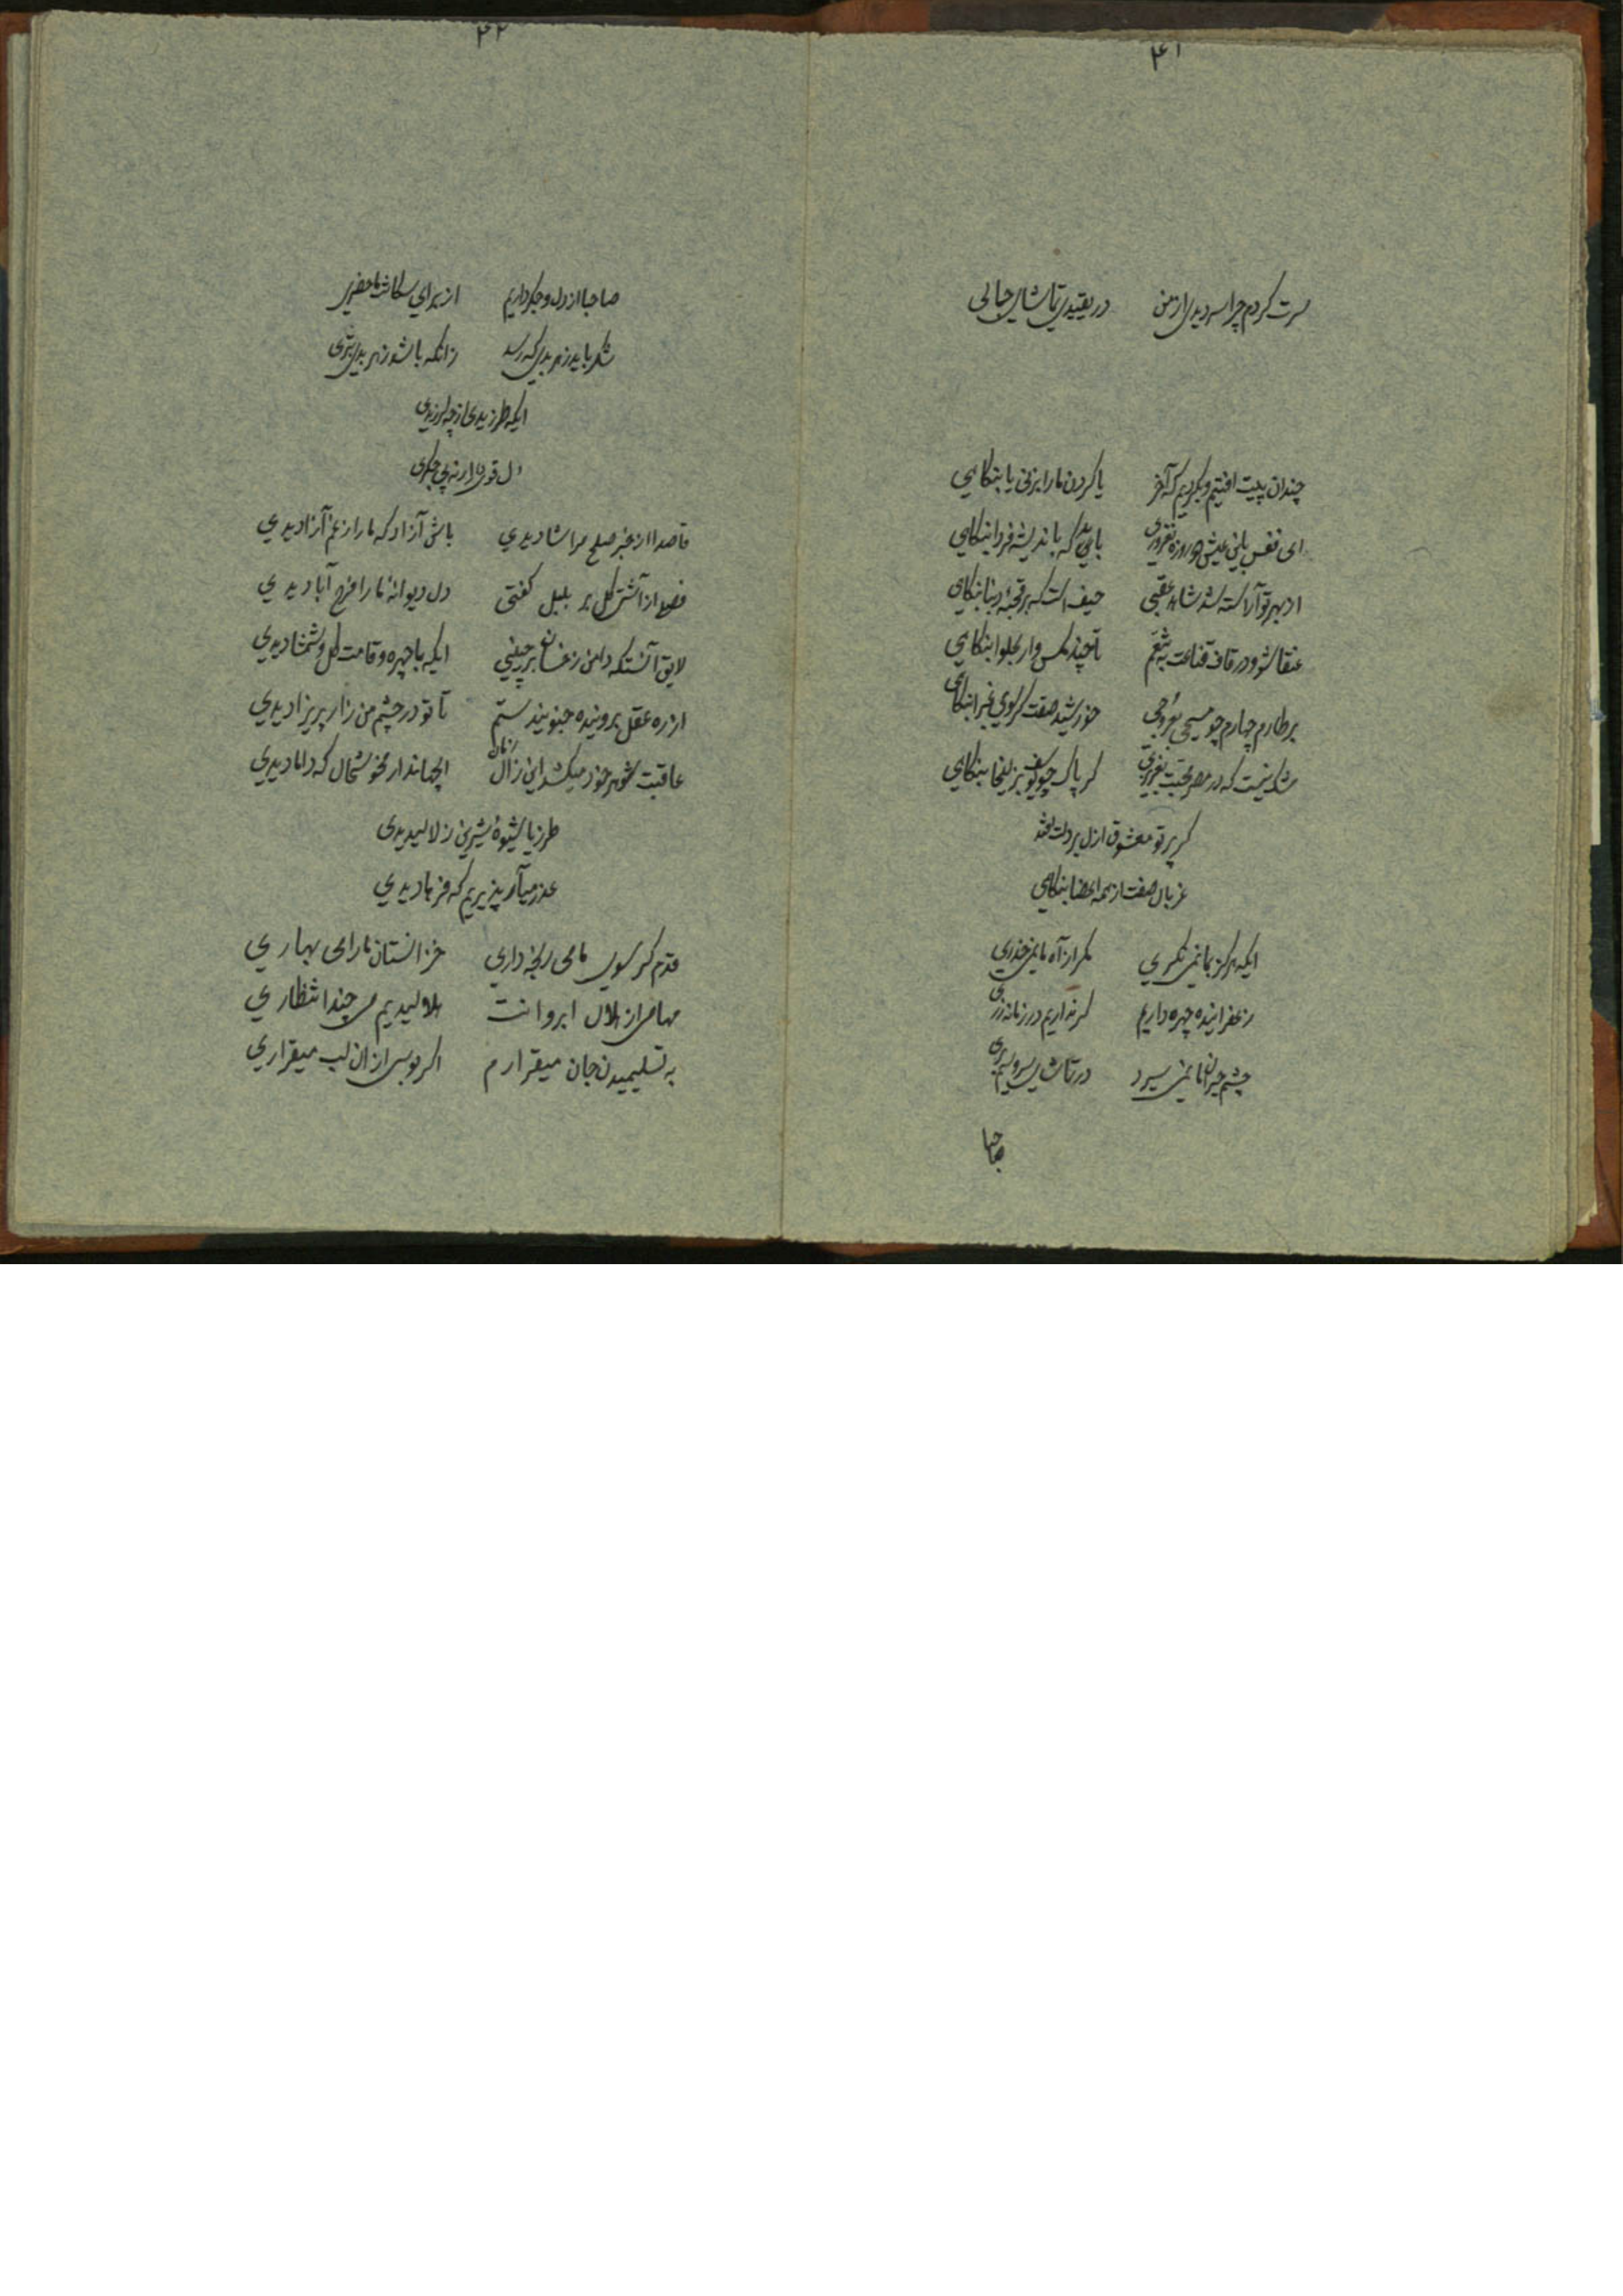 ۴۱
سرت کردم چرا سه دیدی از من در یقیدی تماشای جمالی
چندان پیت افتیم و بگردیم که آخر یا گردن ما را بزنی یا بنگاهی
ای نفس باین عیش دو روزه نغروری باید که باندیشه فردا بنگاهی
از بهر تو آراسته شد شاهد عقبی حیف است که بر قحبه دنیا بنگاهی
عنقا شو و در قاف قناعت تا چند مگس وار بحلوا بنگاهی
بر طارم چهارم چو مسیحی بعروجی خورشید صفت گر بسوی غبرا بنگاهی
شک نیست که در مصر محبت بعزیزی گر پاک چو یوسف بزلیخا بنگاهی
گر پرتو معشوق ازل بر دلت افتد
غربال صفت از همه اعضا بنگاهی
ایکه هرگز بما نمی نگری مگر از آه ما نمی حذری
زعفرانیده چهره داریم گر نداریم در زمانه زری
چشم حیران ما نمی سیرد در تماشای
صاحبا
۴۲
صاحبا از دل و جگر داریم از برای سگانت ما حضری
شکر باید ز هر بدی که رسد زانکه باشد ز هر بدی بتری
ایکه طرزیدی از چه لرزیدی
دل قوی دار نه بی جگری
قاصدا از خبر صلح مرا شادیدی باش آزاد که ما را ز غم آزادیدی
از آتش گل بر بلبل گفتی دل دیوانه ما را فرح آبادیدی
لایق آنست که دامن ز خسان برچینی ایکه با چهره و قامت گل و شمشادیدی
از ره عقل برونیده جنونیدستم تا تو در چشم من زار پریزادیدی
عاقبت شوهر خود میکشد این زال زمان ای جهاندار مخوشحال که دامادیدی
طرزیا شیوه شیرین ز لالیدیدی
عذر میآر پذیریم که فرهادیدی
قدم گر سوی ما می رنجه داری خزانستان ما را می بهاری
مها من از هلال ابروانت هلالیدیم می چند انتظاری
به تسلیمیدن جان میقرارم اگر بوسی از ان لب میقراری